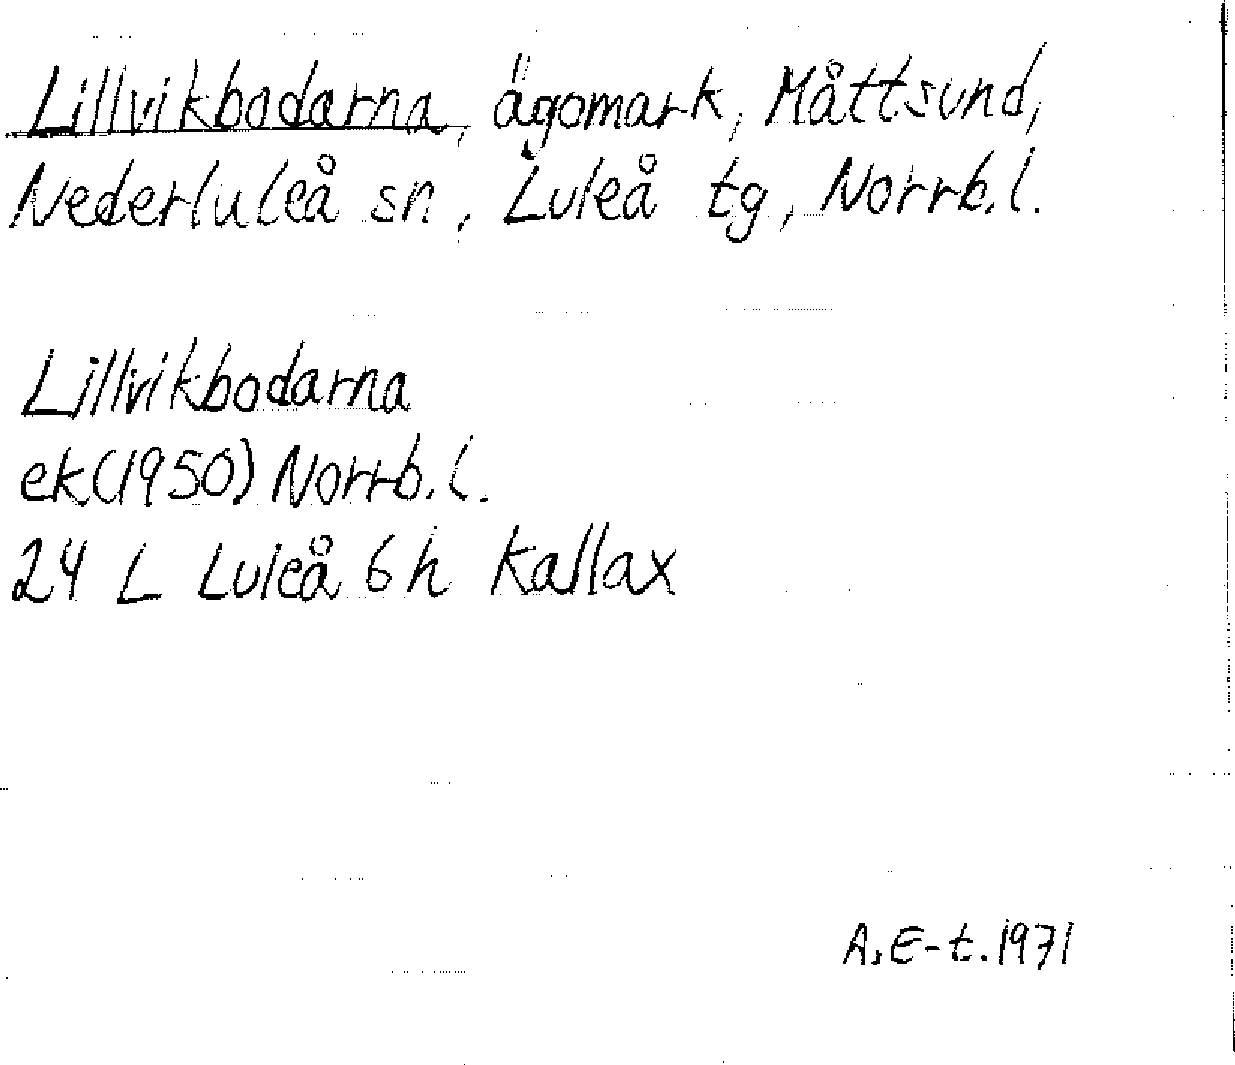 Lillvikbodarna, ägomark, Måttsund,
Nederluleå sn, Luleå tg, Norrb.l.
Lillvikbodarna
ek(1950) Norrb.l.
24 L Luleå 6h Kallax
A.E-t. 1971